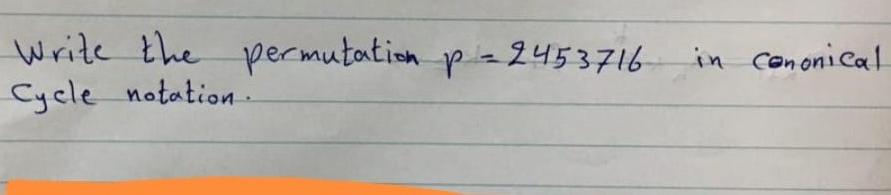 Write the permutation p = 2453716 in cononical
Cycle notation.